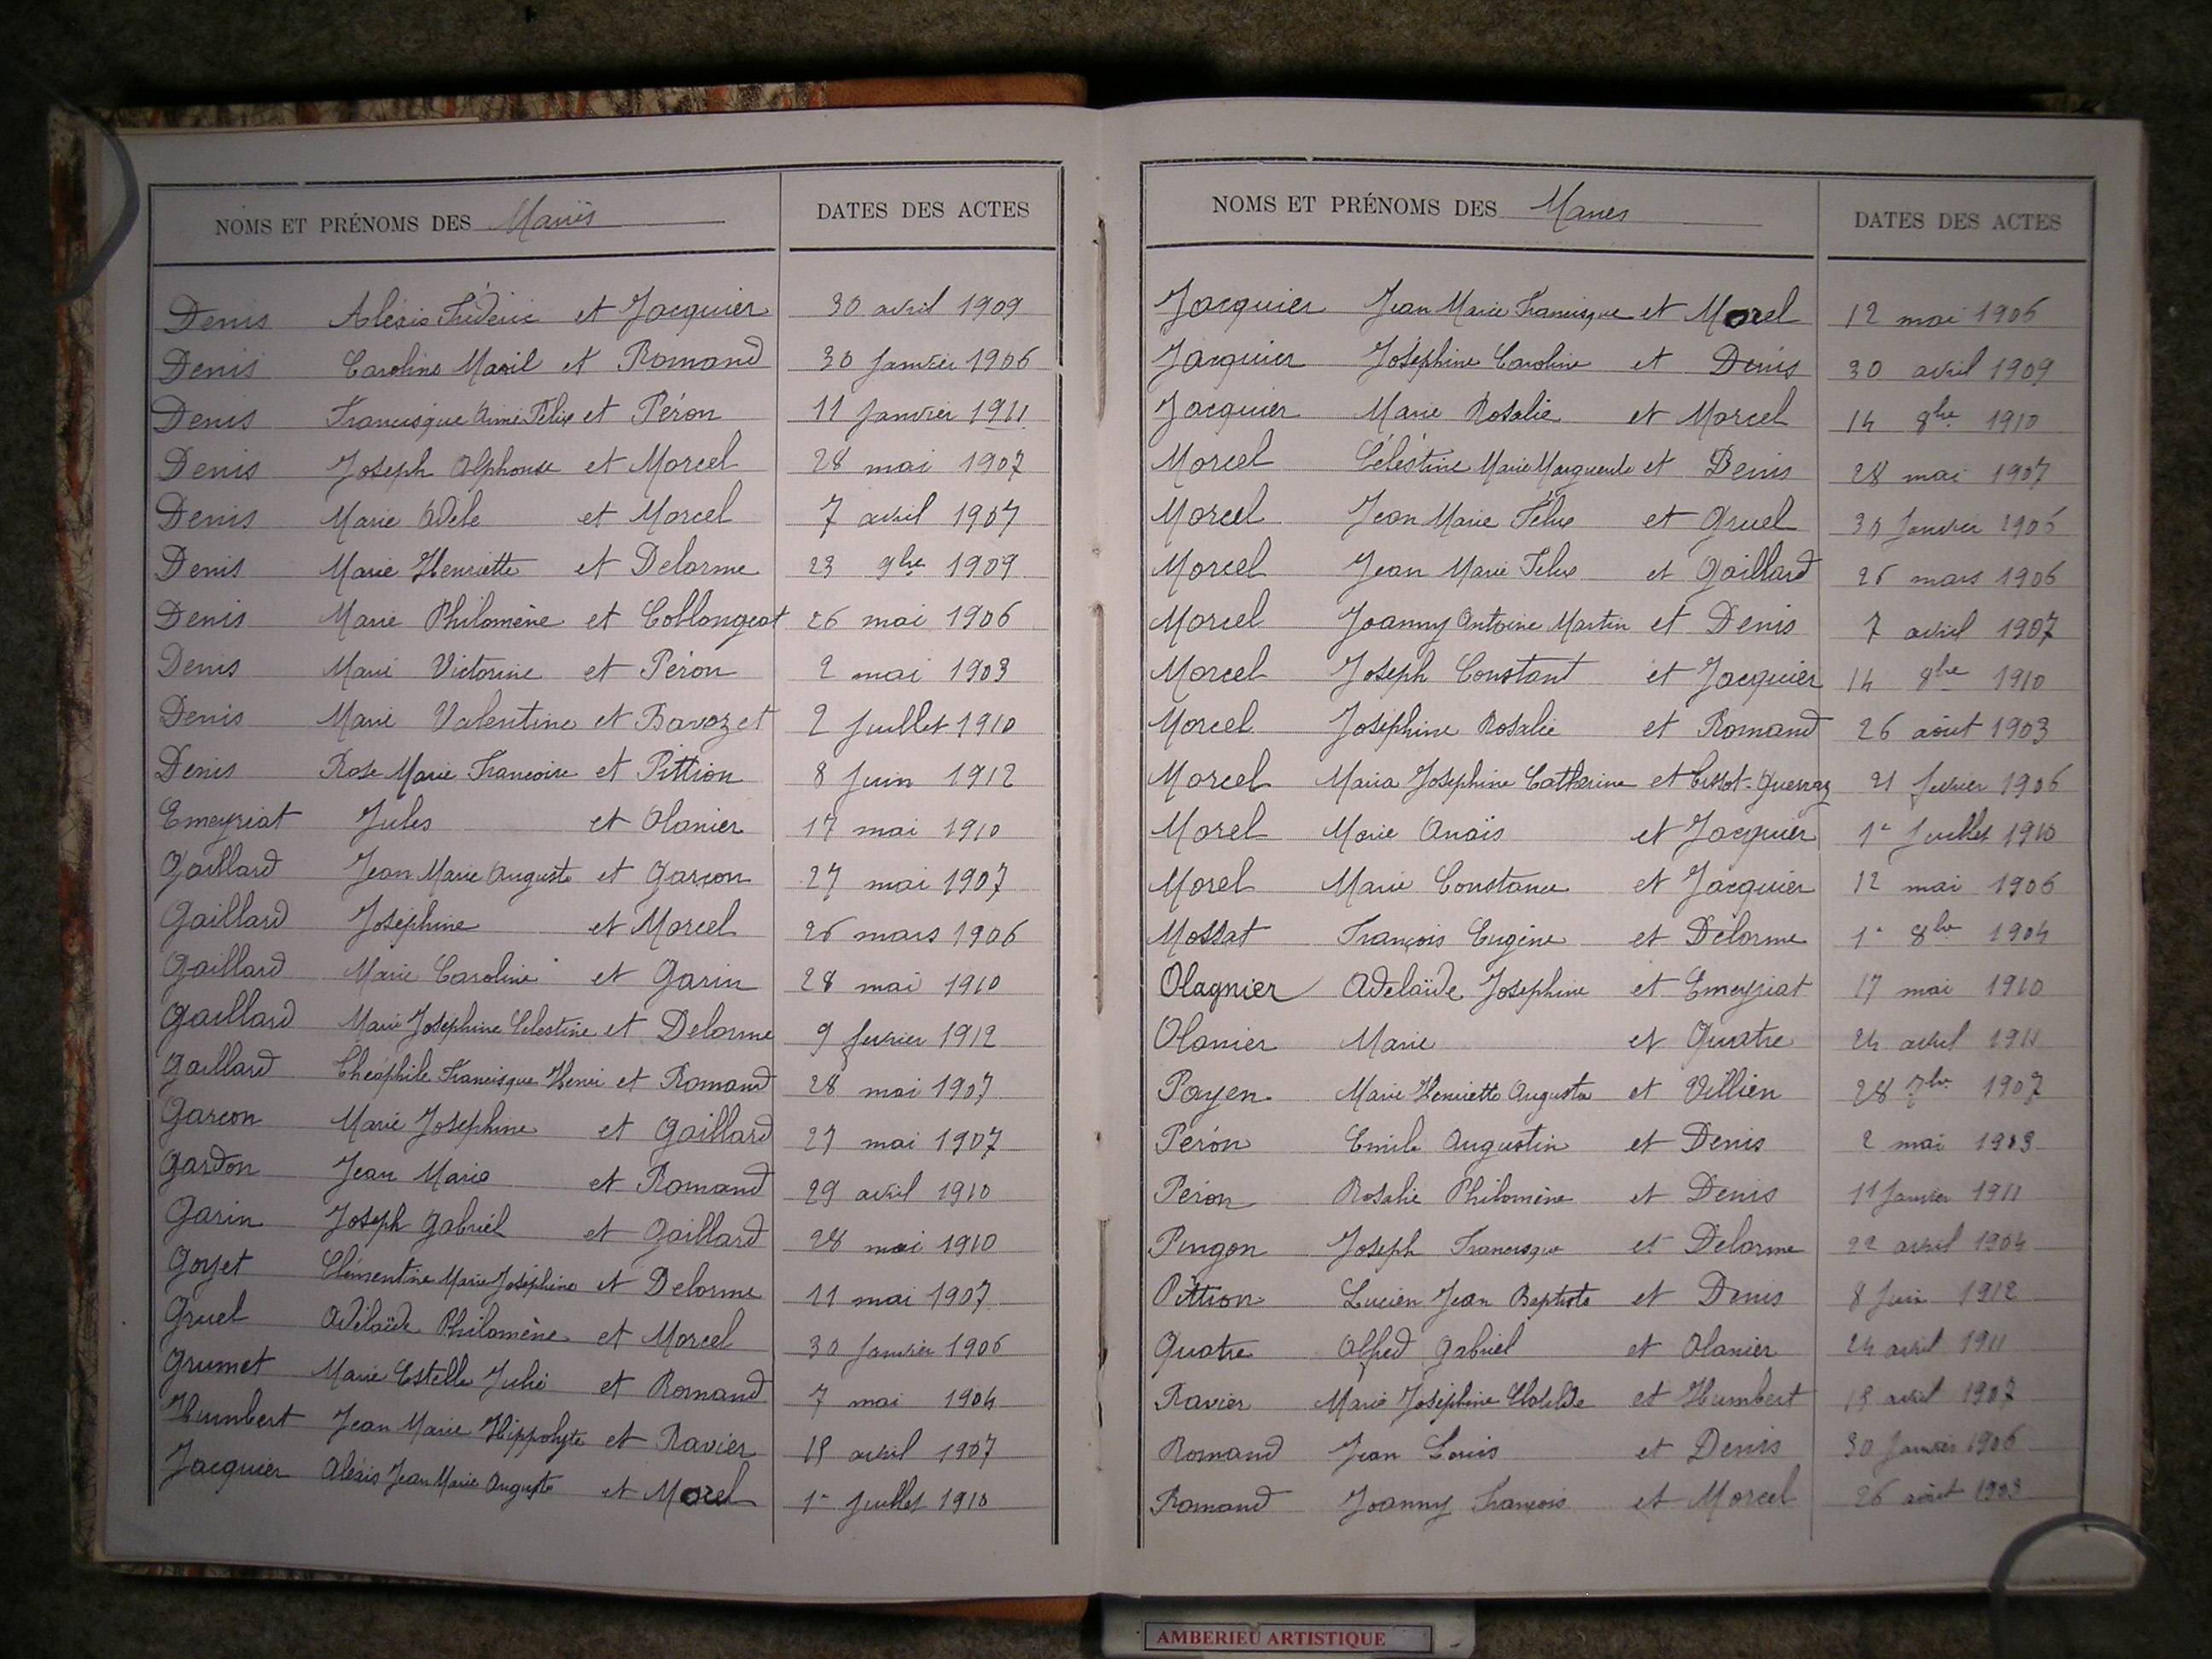 NOMS ET PRÉNOMS DES Mariés DATES DES ACTES
Denis Alexis Frédéric et Jacquier 30 avril 1909
Denis Caroline Maril et Romand 30 Janvier 1906
Denis Francisque Aimé Félix et Péron 11 Janvier 1911
Denis Joseph Alphonse et Morcel 28 mai 1907
Denis Marie Adèle et Morcel 7 avril 1907
Denis Marie Henriette et Delorme 23 9bre 1909
Denis Marie Philomène et Collongeat 26 mai 1906
Denis Marie Victorine et Péron 2 mai 1903
Denis Marie Valentine et Bavozet 2 Juillet 1910
Denis Rose Marie Francoise et Pittion 8 Juin 1912
Emeyriat Jules et Olanier 17 mai 1910
Gaillard Jean Marie Auguste et Garçon 27 mai 1907
Gaillard Joséphine et Morcel 26 mars 1906
Gaillard Marie Caroline et Garin 28 mai 1910
Gaillard Marie Joséphine Célestine et Delorme 9 fevrier 1912
Gaillard Théophile Francisque Henri et Romand 28 mai 1907
Garcon Marie Joséphine et Gaillard 27 mai 1907
Gardon Jean Marie et Romand 29 avril 1910
Garin Joseph Gabriel et Gaillard 28 mai 1910
Goyet Clémentine Marie Joséphine et Delorme 11 mai 1907
Gruel Adélaïde Philomène et Morcel 30 Janvier 1906
Grumet Marie Estelle Julie et Romand 7 mai 1904
Humbert Jean Marie Hippolyte et Ravier 19 avril 1907
Jacquier Alexis Jean Marie Auguste et Morel 1er Juillet 1910
NOMS ET PRÉNOMS DES Maries DATES DES ACTES
Jacquier Jean Marie Francisque et Morel 12 mai 1906
Jacquier Joséphine Caroline et Denis 30 avril 1909
Jacquier Marie Rosalie et Morcel 14 8bre 1910
Morcel Célestine Marie Marguerite et Denis 28 mai 1907
Morcel Jean Marie Félix et Gruel 30 Janvier 1906
Morcel Jean Marie Felix et Gaillard 26 mars 1906
Morcel Joanny Antoine Martin et Denis 7 avril 1907
Morcel Joseph Constant et Jacquier 14 8bre 1910
Morcel Joséphine Rosalie et Romand 26 août 1903
Morcel Maria Joséphine Catherine et Tissot-Guerraz 21 fevrier 1906
Morel Marie Anaïs et Jacquier 1er Juillet 1910
Morel Marie Constance et Jacquier 12 mai 1906
Mossat François Eugène et Delorme 1er 8bre 1904
Olagnier Adelaïde Joséphine et Emeyriat 17 mai 1910
Olanier Marie et Quatre 24 avril 1911
Payen Marie Henriette Augusta et Villien 28 7bre 1907
Péron Emile Augustin et Denis 2 mai 1903
Péron Rosalie Philomène et Denis 11 Janvier 1911
Pingon Joseph Francisque et Delorme 22 avril 1904
Pittion Lucien Jean Baptiste et Denis 8 Juin 1912
Quatre Alfred Gabriel et Olanier 24 avril 1911
Ravier Marie Joséphine Clotilde et Humbert 19 avril 1907
Romand Jean Louis et Denis 30 Janvier 1906
Romand Joanny François et Morcel 26 août 1903
AMBERIEU ARTISTIQUE